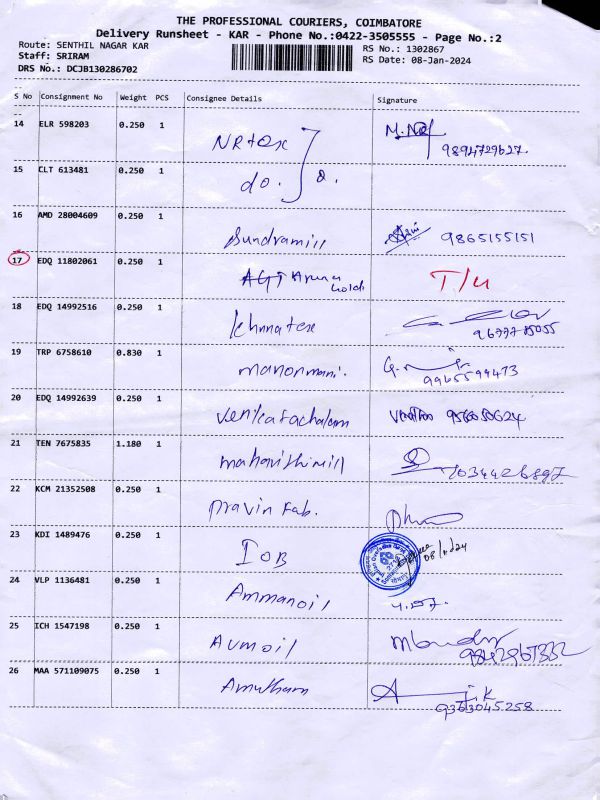 THE PROFESSIONAL COURIERS, COIMBATORE
Delivery Runsheet - KAR - Phone No.:0422-3505555 - Page No.:2
Route: SENTHIL NAGAR KAR RS No.: 1302867
Staff: SRIRAM RS Date: 08-Jan-2024
DRS No.: DCJB130286702
S No Consignment No Weight PCS Consignee Details Signature
14 ELR 598203 0.250 1 NRtex 9894729627.
15 CLT 613481 0.250 1 do.
16 AMD 28004609 0.250 1 Sundramill 9865155151
17 EDQ 11802061 0.250 1 AGT Aruna Gold T/u
18 EDQ 14992516 0.250 1 khnnatex
19 TRP 6758610 0.830 1 manonmani. 9965599473
20 EDQ 14992639 0.250 1 Venkatachalam
21 TEN 7675835 1.180 1
22 KCM 21352508 0.250 1 Pravin Fab.
23 KDI 1489476 0.250 1 IOB
24 VLP 1136481 0.250 1 Ammanoil
25 ICH 1547198 0.250 1 Avmoil
26 MAA 571109075 0.250 1 Amutham
9363045258